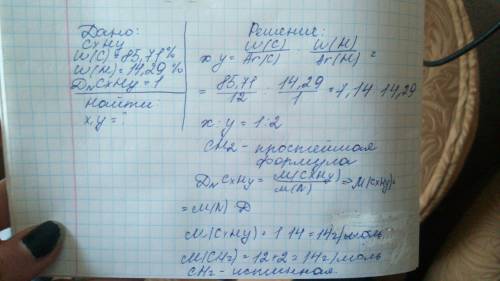 Дано:
CxHy
W(C) = 85,71%
W(H) = 14,29%
D_N CxHy = 1
Найти
x, y = ?
Решение:
x y = W(C)/Ar(C) · W(H)/Ar(H) =
= 85,71/12 · 14,29/1 = 1,14 14,29
x · y = 1 : 2
CH2 - простейшая
формула
D_N CxHy = M(CxHy)/M(N) => M(CxHy) =
= M(N) · D
M(CxHy) = 1 14 = 14 г/моль
M(CH2) = 12+2 = 14 г/моль
CH2 - истинная.